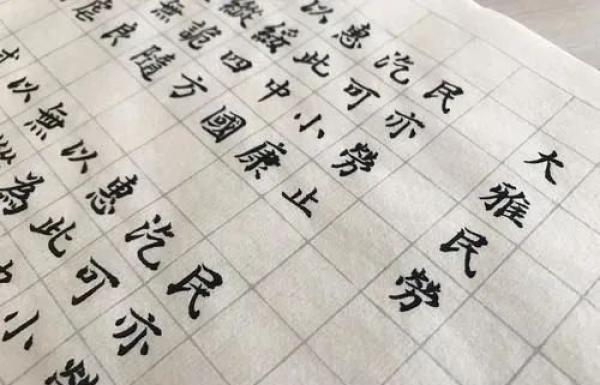 大雅民勞
民亦勞止
汔可小康
惠此中國
以綏四方
縱詭隨
無良
虐
民亦勞
汔可小
惠此中
以為
無
以